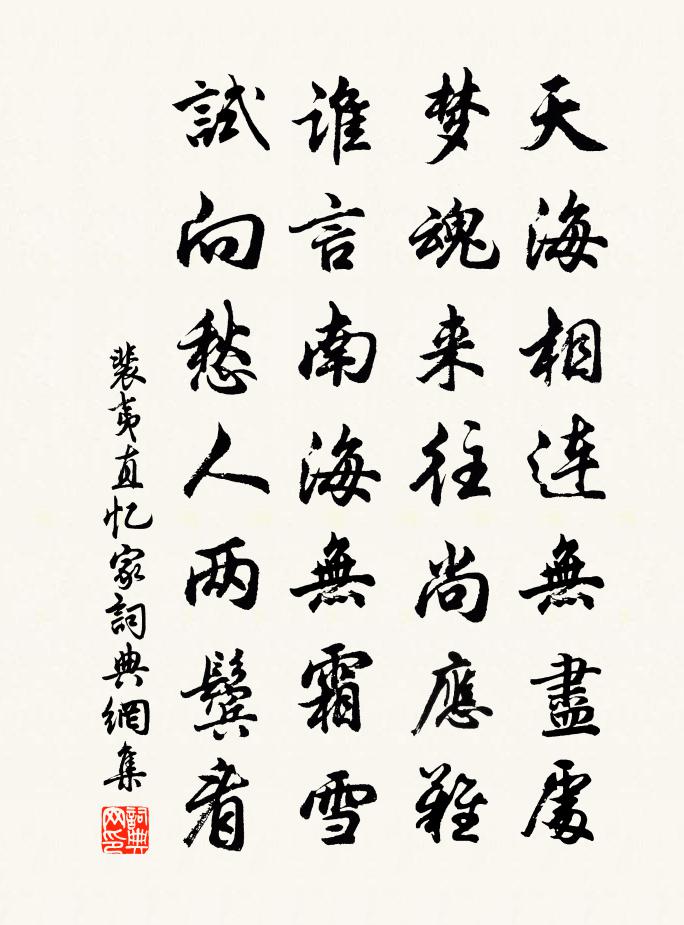 天海相连無盡處
梦魂来往尚應難
谁言南海無霜雪
試向愁人两鬓看
裴夷直忆家詞典網集
詞典网印